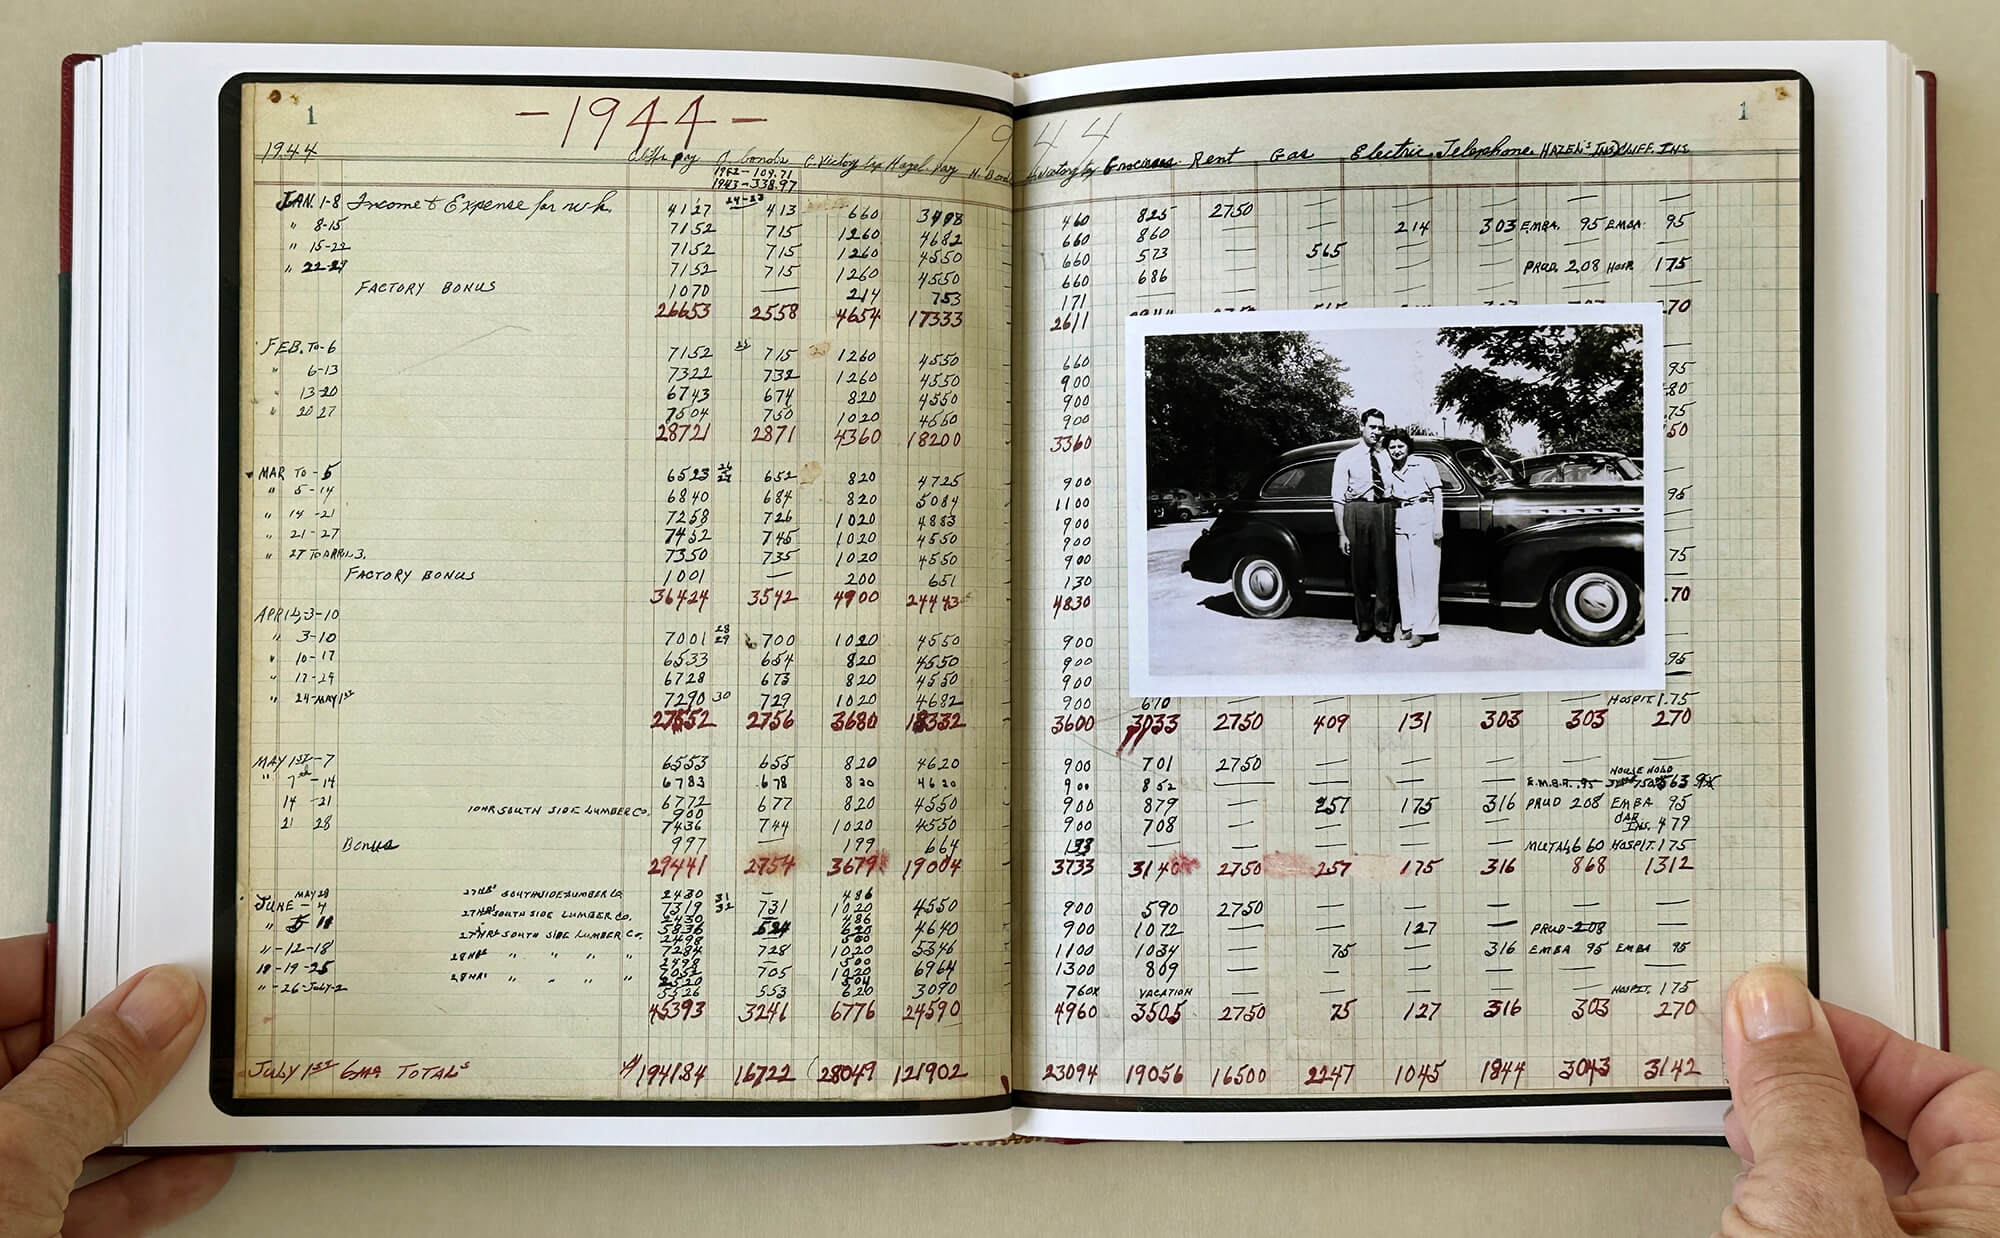 1 -1944- 1944 1
1944 Cliff's pay D. bonds C. Victory tax Hazel. pay H. Bonds H. Victory tax Groceries Rent Gas Electric Telephone HAZEN'S INS. CLIFF. INS.
1942-109.71
1943-338.97
JAN. 1-8 Income & Expense for wk. 4127 413 660 460 825 2750 — — — — —
" 8-15 7152 715 1260 4682 660 860 — — 214 303 EMBA. 95 EMBA 95
" 15-22 7152 715 1260 4550 660 573 — 565 — — — —
" 22-29 7152 715 1260 4550 660 686 — — — — PRUD. 208 HOSP. 175
FACTORY BONUS 1070 — 214 753 171 — — — — — — —
26653 2558 4654 17333 2611 70
FEB. To-6 7152 715 1260 4550 660
" 6-13 7322 732 1260 4550 900 95
" 13-20 6743 674 820 4550 900 80
" 20 27 7504 750 1020 4550 900 75
28721 2871 4360 18200 3360 50
MAR TO - 5 6523 652 820 4725 900
" 5-14 6840 684 820 5084 1100 95
" 14-21 7258 726 1020 4883 900
" 21-27 7452 745 1020 4550 900
" 27 TO APRIL 3. 7350 735 1020 4550 900 75
FACTORY BONUS 1001 — 200 651 130
36424 3542 4900 24443 4830 .70
APRIL 3-10
" 3-10 7001 28 29 700 1020 4550 900
" 10-17 6533 654 820 4550 900 95
" 17-24 6728 673 820 4550 900
" 24-MAY 1ST 7290 30 729 1020 4682 900 670 — — — — — HOSPIT. 1.75
27552 2756 3680 18332 3600 3033 2750 409 131 303 303 270
MAY 1ST-7 6553 655 820 4620 900 701 2750 — — — — —
" 7th-14 6783 678 820 4620 900 852 — — — — E.M.B.A. .95 HOUSE HOLD
14 -21 10HR SOUTH SIDE LUMBER CO. 6772 677 820 4550 900 879 — 257 175 316 PRUD 208 EMBA 95
900
21 28 7436 744 1020 4550 900 708 — — — — — CAR INS. 479
Bonus 997 — 199 664 133 — — — — — MUTAL 660 HOSPIT. 175
29441 2754 3679 19004 3733 3140 2750 257 175 316 868 1312
MAY 28 27HRS SOUTHSIDE LUMBER CO. 2430 31 — 486
JUNE - 4 7319 32 731 1020 4550 900 590 2750 — — — — —
27HRS SOUTH SIDE LUMBER CO. 2430 — 486
" 5 11 5836 524 620 4640 900 1072 — — 127 — PRUD-208 —
27HRS SOUTH SIDE LUMBER CO. 2498 500
" -12-18 7284 728 1020 5346 1100 1034 — 75 — 316 EMBA 95 EMBA 95
28HRS " " " " 2498 500
" -19-25 7052 705 1020 6964 1300 809 — — — — — —
28HRS " " " " 2520 504
" -26-July-2 5526 553 620 3090 760X VACATION — — — — — HOSPIT. 175
45393 3241 6776 24590 4960 3505 2750 75 127 316 303 270
JULY 1ST 6MO TOTALS $194184 16722 28049 121902 23094 19056 16500 2247 1045 1844 3043 3142